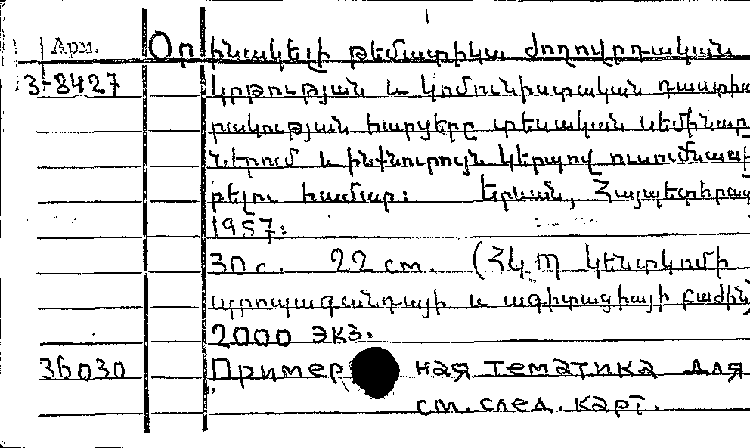 Арм. Օրինակելի թեմատիկա ժողովրդական
3-8427 կրթության և կոմունիստական դաստիա
րակության հարցերը տեսական սեմինար
ներում և ինքնուրույն կերպով ուսումնասի
րելու համար: Երևան, Հայպետհրատ
1957:
30 с. 22 см. (ՀԿՊ կենտկոմի
պրոպագանդայի և ագիտացիայի բաժին
2000 экз.
36030 Примерная тематика для
см. след. карт.